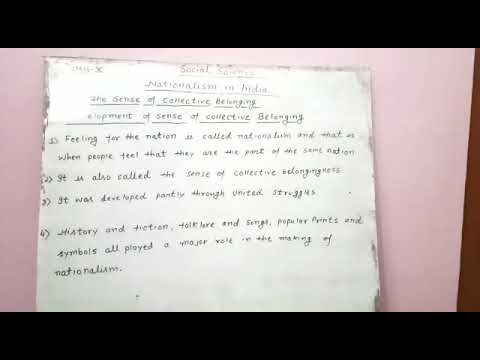 Social Science
Nationalism in India
The Sense of Collective Belonging
elopment of sense of collective Belonging
1) Feeling for the nation is called nationalism and that is
when people feel that they are the part of the same nation
2) It is also called the sense of collective belongingness
3) It was developed partly through united struggles.
4) History and fiction, folklore and songs, popular prints and
symbols all played a major role in the making of
nationalism.